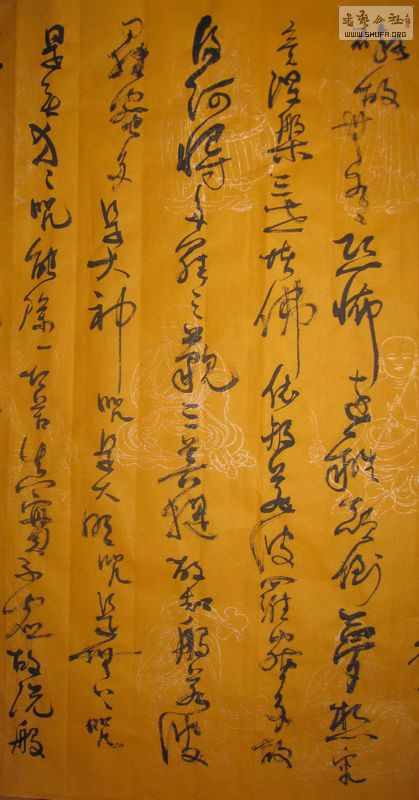 書藝公社
WWW.SHUFA.ORG
礙故無有恐怖遠離顛倒夢想究
竟涅槃三世諸佛依般若波羅蜜多故
得阿耨多羅三藐三菩提故知般若波
羅蜜多是大神咒是大明咒是無上咒
是無等々咒能除一切苦真實不虛故說般